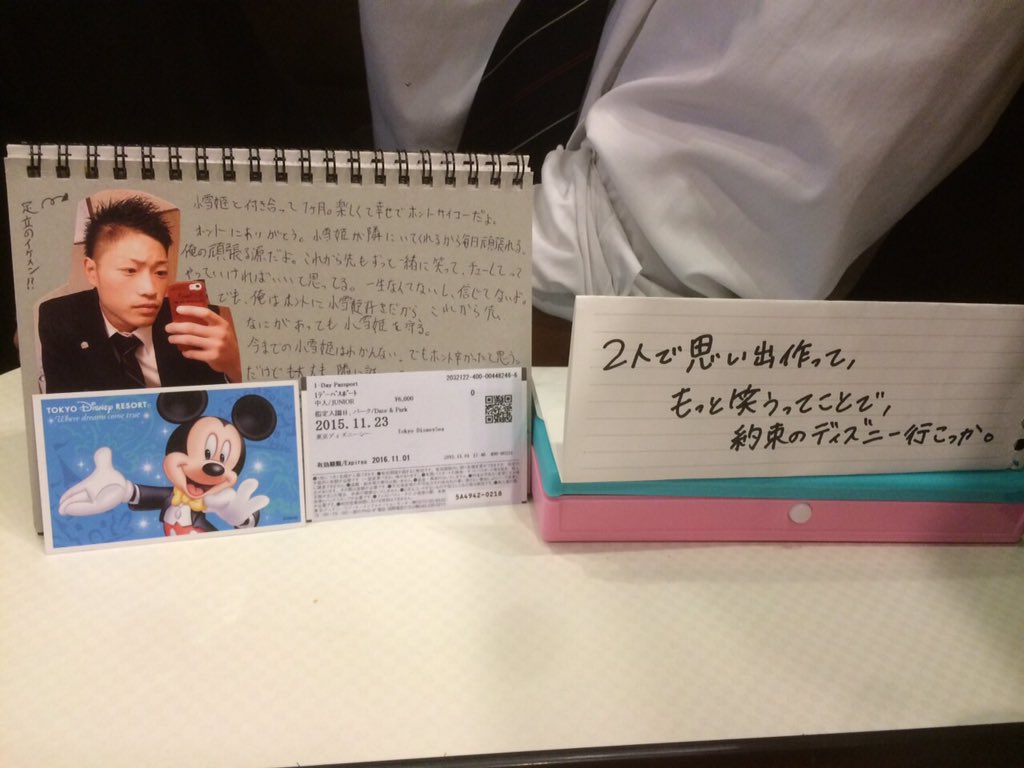 足立のイケメン!!
小雪姫と付き合って1ヶ月。楽しくて幸せでホントサイコーだよ。
ホントにありがとう。小雪姫が隣にいてくれるから毎日頑張れる。
俺の頑張る源だよ。これから先もずっと一緒に笑って、チューしてって
やっていければいいって思ってる。一生なくてないし、信じてないよ。
でも、俺はホントに小雪姫好きだから、これから先、
なにがあっても小雪姫を守る。
今までの小雪姫はわかんない。でもホント辛かったと思う。
だけど
TOKYO Disney RESORT
Where dreams come true
1-Day Passport
2032122-400-00448246-6
1デーパスポート
中人/JUNIOR ¥6,000
0
指定入園日、パーク/Date & Park
2015.11.23
東京ディズニーシー Tokyo DisneySea
有効期限/Expires 2016.11.01
5A4942-0218
2人で思い出作って、
もっと笑うってことで、
約束のディズニー行こっか。